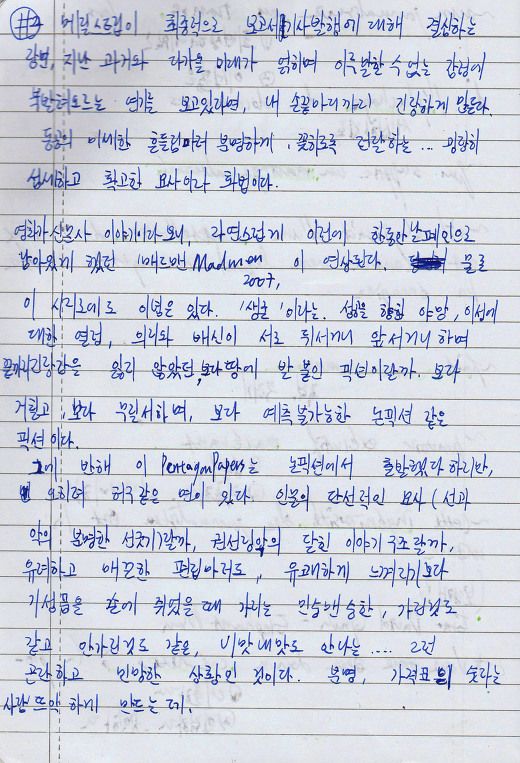 #2 메릴스트립이 최종적으로 보고서 기사발행에 대해 결심하는
장면, 지난 과거와 다가올 미래가 얽히며 이루말할 수 없는 감정에
북받쳐오르는 연기를 보고있다면, 내 손끝마디까지 긴장하게 만든다.
동공의 미세한 흔들림마저 분명하게, 꽂히도록 전달하는 ... 굉장히
섬세하고 확고한 묘사이자 화법이다.
영화가 신문사 이야기이다보니, 자연스럽게 이전에 한동안 날 폐인으로
남아있게 했던 '매드맨 Madmen 이 연상된다. 물로
2007,
이 시리즈에도 이념은 있다. '생존'이라는. 성공을 향한 야망, 이성에
대한 열망, 의리와 배신이 서로 뒤서거니 앞서거니 하며
끝까지 긴장감을 잃지 않았던, 보다 땅에 발 붙인 픽션이랄까. 보다
거칠고, 보다 무질서하며, 보다 예측불가능한 논픽션 같은
픽션이다.
그에 반해 이 Pentagon Papers는 논픽션에서 출발했다 하지만,
오히려 허구같은 면이 있다. 인물의 단선적인 묘사 (선과
악의 분명한 선긋기)랄까, 권선징악의 닫힌 이야기 구조랄까,
유려하고 매끈한 편집마저도, 유쾌하게 느껴지기보다
기성품을 손에 쥐었을 때 가지는 민숭맨숭한, 가진것도
같고 안가진것도 같은, 이맛 내맛도 안나는 .... 그런
곤란하고 민망한 상황인 것이다. 분명, 가격표의 숫자는
사람 뜨악 하게 만드는 데.